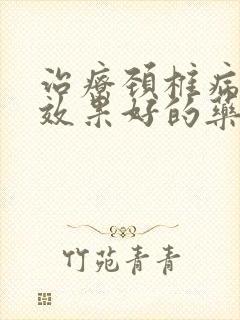 治療頚椎病
效果好的藥
竹苑青青